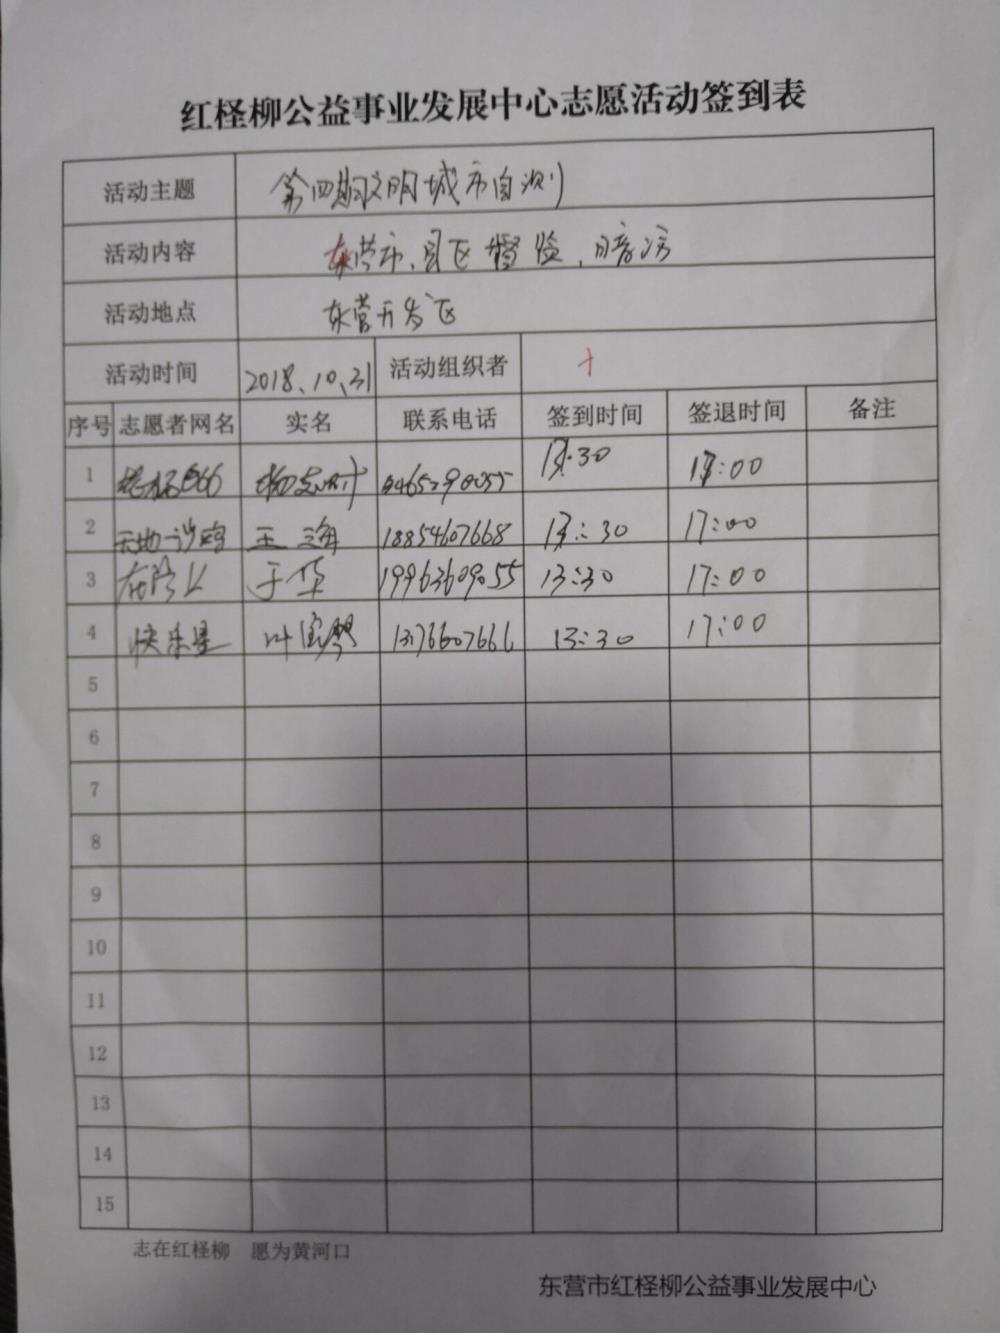 红柽柳公益事业发展中心志愿活动签到表
活动主题 第四期文明城市自测
活动内容 东营市、县区督
活动地点 东营开发区
活动时间 2018、10、31 活动组织者
序号 志愿者网名 实名 联系电话 签到时间 签退时间 备注
1 13:30 17:00
2 天地一沙鸥 王海 18854607668 13:30 17:00
3 于华 19963609055 13:30 17:00
4 快乐星 叶 13176607666 13:30 17:00
5
6
7
8
9
10
11
12
13
14
15
志在红柽柳 愿为黄河口
东营市红柽柳公益事业发展中心